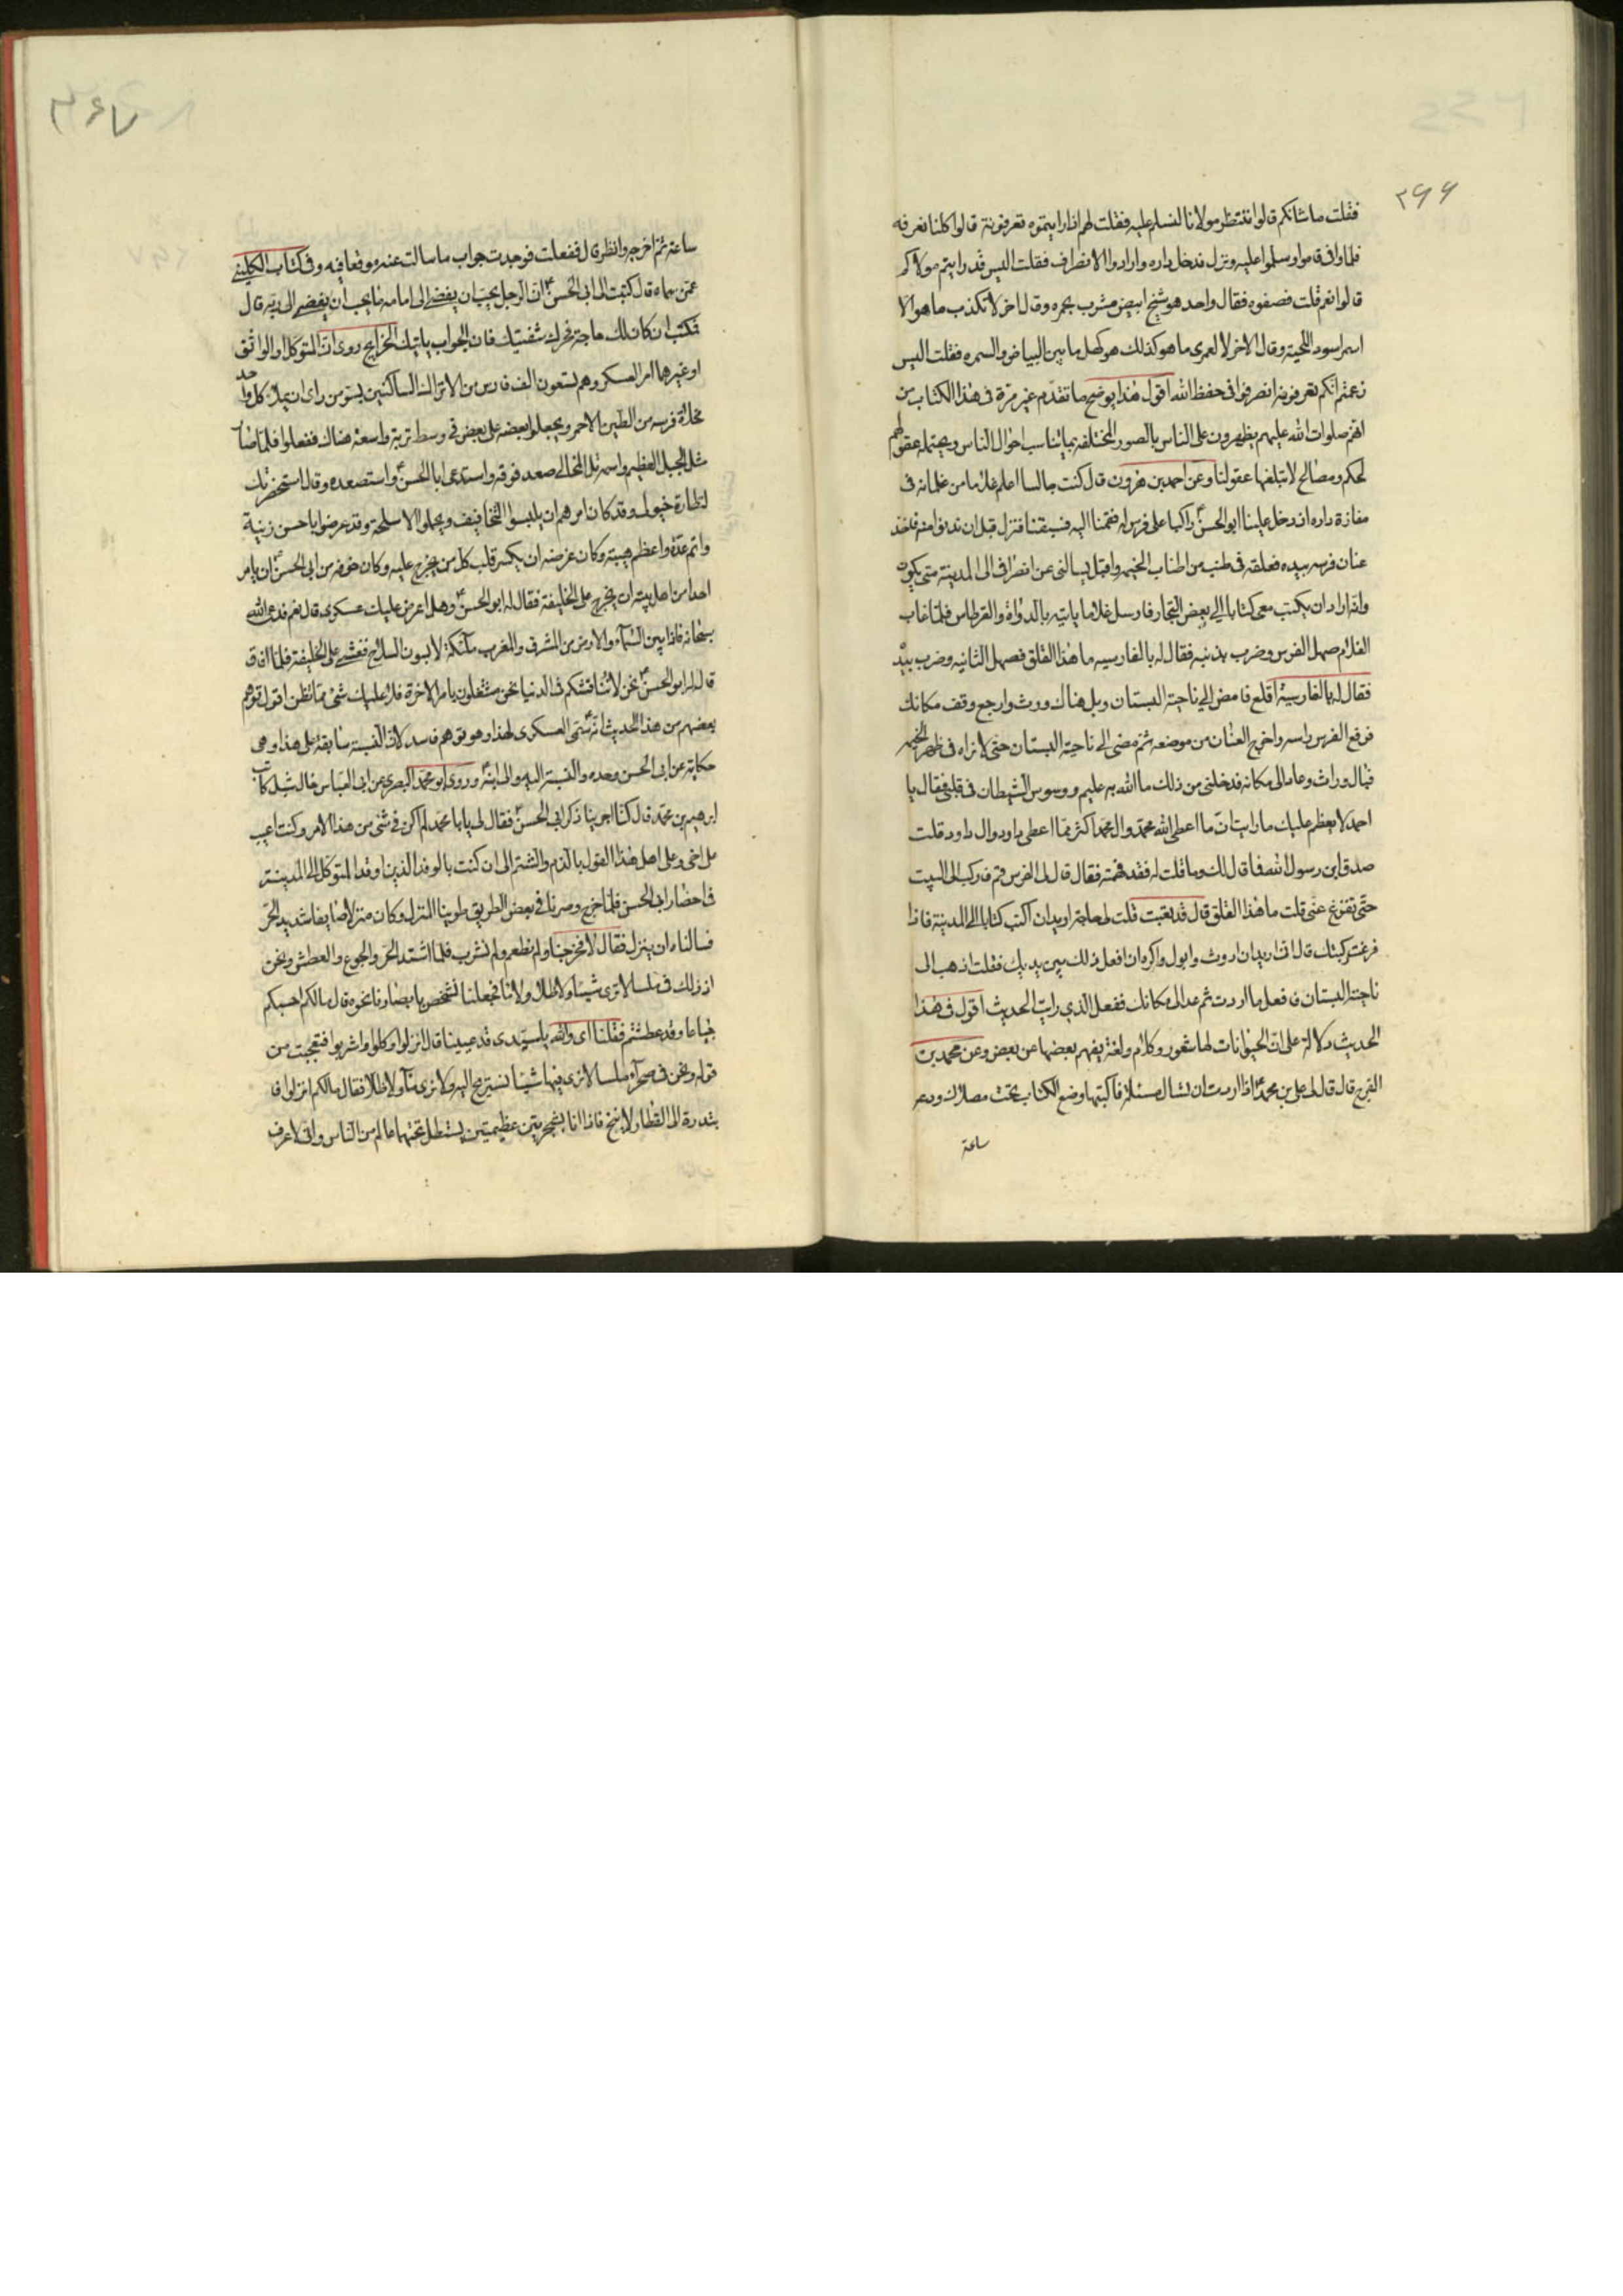 ٢٦٦
فقلت ما شانكم قالوا ننتظر مولانا لنسلم عليه فقلت لهم اذا رايتموه تعرفونه قالوا كلنا نعرفه
فلما وافى قاموا وسلموا عليه ونزل فدخل داره وارادوا الانصراف فقلت اليس قد رايتم مولاكم
قالوا نعم قلت فصفوه فقال واحد هو شيخ ابيض مشرب بحمره وقال اخر لا تكذب ما هو الا
اسمر اسود اللحية وقال الاخر لا لعمرى ما هو كذلك هو كهل ما بين البياض والسمره فقلت اليس
زعمتم انكم تعرفونه انصرفوا فى حفظ الله اقول هذا يوضح ما تقدم غير مرة فى هذا الكتاب من
انهم صلوات الله عليهم يظهرون على الناس بالصور المختلفه بما يناسب احوال الناس ويحتمله عقولهم
لحكم ومصالح لا تبلغها عقولنا وعن احمد بن هرون قال كنت جالسا اعلم غلاما من غلمانه فى
مفازة داره اذ دخل علينا ابو الحسن ع راكبا على فرس له فقمنا اليه فسبقنا فنزل قبل ان ندنوا منه فاخذ
عنان فرسه بيده فعلقه فى طنب من اطناب الخيمه واقبل يسالنى عن انصرافى الى المدينة متى يكون
وانه اراد ان يكتب معى كتابا الى بعض التجار فارسل غلاما ياتيه بالدواة والقرطاس فلما غاب
الغلام صهل الفرس وضرب بذنبه فقال له بالفارسيه ما هذا القلق فصهل الثانيه وضرب بيد
فقال له بالفارسية اقلع فامض الى ناحية البستان وبل هناك وروث وارجع وقف مكانك
فرفع الفرس راسه واخرج العنان من موضعه ثم مضى الى ناحية البستان حتى لا نراه فى ظهر الخيمه
فبال وراث وعاد الى مكانه فدخلنى من ذلك ما الله به عليم ووسوس الشيطان فى قلبى فقال يا
احمد لا يعظم عليك ما رايت ان ما اعطى الله محمد وال محمد اكثر مما اعطى داود وال داود قلت
صدق ابن رسول الله فما قال لك وما قلت له فقد فهمته فقال قال لى الفرس قم فاركب الى البيت
حتى تفرغ عنى قلت ما هذا القلق قال قد تعبت قلت لى حاجة اريد ان اكتب كتابا الى المدينة فاذا
فرغت ركبتك قال انى اريد ان اروث وابول واكره ان افعل ذلك بين يديك فقلت اذهب الى
ناحية البستان فافعل ما اردت ثم عد الى مكانك ففعل الذي رايت الحديث اقول فى هذا
الحديث دلالة على ان الحيوانات لها شعور وكلام ولغة يفهم بعضها عن بعض وعن محمد بن
الفرج قال قال لى على بن محمد ع اذا اردت ان تسال مسئلة فاكتبها وضع الكتاب تحت مصلاك ودعه
ساعة
٢٦٧
ساعة ثم اخرجه وانظر قال ففعلت فوجدت جواب ما سالت عنه موقعا فيه وفى كتاب الكلينى
عمن سماه قال كتبت الى ابى الحسن ع ان الرجل يحب ان يفضى الى امامه ما يحب ان يفضى الى ربه قال
فكتب ان كان لك حاجة فحرك شفتيك فان الجواب ياتيك الخرايج روى ان المتوكل او الواثق
او غيرهما امر العسكر وهم تسعون الف فارس من الاتراك الساكنين بسر من راى ان يملا كل واحد
مخلاة فرسه من الطين الاحمر ويجعلوا بعضه على بعض فى وسط تربة واسعة هناك ففعلوا فلما صار
مثل الجبل العظيم واسمه تل المخالى صعد فوقه واستدعى ابا الحسن ع واستصعده وقال استحضرتك
لنظارة خيولى وقد كان امرهم ان يلبسوا التخافيف ويحملوا الاسلحة وقد عرضوا باحسن زينة
واتم عدة واعظم هيبة وكان غرضه ان يكسر قلب كل من يخرج عليه وكان خوفه من ابى الحسن ع ان يامر
احدا من اهل بيته ان يخرج على الخليفة فقال له ابو الحسن ع وهل اعرض عليك عسكرى قال نعم فدعى الله
سبحانه فاذا بين السماء والارض من المشرق والمغرب ملائكة لابسون السلاح فغشى على الخليفة فلما افاق
قال له ابو الحسن ع نحن لا نناقشكم فى الدنيا نحن مشتغلون بامر الاخرة فلا عليك شئ مما تظن اقول توهم
بعضهم من هذا الحديث انه سمى العسكرى لهذا وهو توهم فاسد لان النسبة سابقة على هذا وهى
حكاية عن ابى الحسن وحده والنسبة اليه والى ابنه ع وروى ابو محمد البصرى عن ابى العباس خال شبل كاتب
ابرهيم بن محمد قال كنا اجرينا ذكر ابى الحسن ع فقال لى يا با محمد لم اكن فى شئ من هذا الامر وكنت اعيب
على اخى وعلى اهل هذا القول بالذم والشتم الى ان كنت بالوفد الذين اوفد المتوكل الى المدينة
فى احضار ابى الحسن فلما خرج وصرنا فى بعض الطريق طوينا المنزل وكان منزلا صايفا شديد الحر
فسالناه ان ينزل فقال لا فخرجنا ولم نطعم ولم نشرب فلما اشتد الحر والجوع والعطش ونحن
اذ ذلك فى ملسا لا نرى شيئا ولا ظل ولا ماء فجعلنا نشخص بابصارنا نحوه قال ما لكم احسبكم
جياعا وقد عطشتم فقلنا اى والله يا سيدى قد عيينا قال انزلوا وكلوا واشربوا فتعجبت من
قوله ونحن فى صحراء ملسا لا نرى فيها شيئا نستريح اليه ولا نرى ماء ولا ظلا فقال ما لكم انزلوا فا
بتدرة الى القطار لانيخ فاذا انا بشجرتين عظيمتين يستظل تحتهما عالم من الناس وانى لاعرف